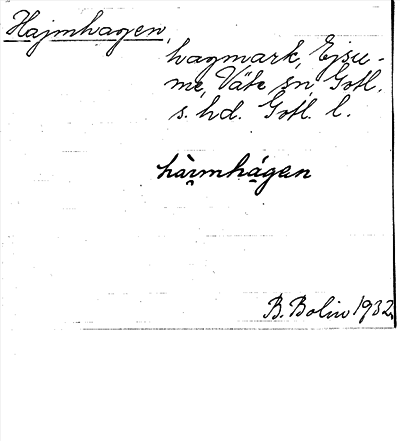 Hajmhagen,
hagmark, Ejsu-
me, Väte sn, Gotl.
s. hd. Gotl. l.
hàrmhágen
B. Bolin 1932.